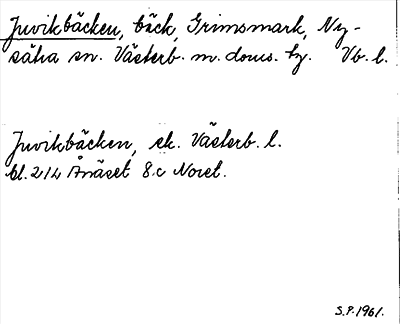 Juvikbäcken, bäck, Grimsmark, Ny-
sätra sn. Västerb. m. doms. tg. Vb. l.
Juvikbäcken, ek. Västerb. l.
bl. 214 Ånäset 8c Noret.
S.P. 1961.